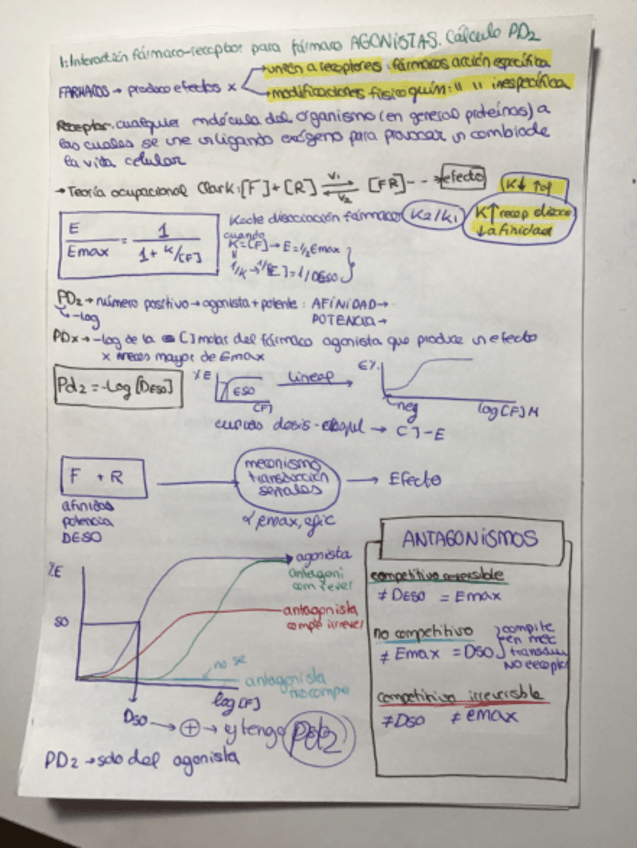 1: Interacción fármaco-receptor para fármaco AGONISTAS. Cálculo PD2
FÁRMACOS → produce efectos x
unión a receptores: fármacos acción específica
modificaciones físico quím: " " inespecífica
Receptor: cualquier molécula del organismo (en general proteínas) a
las cuales se une un ligando exógeno para provocar un cambio de
la vida celular
→ Teoría ocupacional Clark: [F] + [R] ⇄ [FR] --→ efecto
V1
V2
K↓ ↑af
K↑ recep disoc
↓ afinidad
E / Emax = 1 / 1 + K/[F]
K = cte disociación fármaco K2/K1
cuando
K = [F] → E = 1/2 Emax
1/K → 1/[E] = 1/DE50
PD2 → número positivo → agonista + potente: AFINIDAD →
-log
POTENCIA →
PDx → -log de la [ ] molar del fármaco agonista que produce un efecto
x veces mayor de Emax
Pd2 = -Log [DE50]
%E
E50
[F]
lineal
E%
neg
log[F] M
curvado dosis- → [ ] - E
F + R
mecanismo
transducción
señales
Efecto
afinidad
potencia
DE50
α emax, efic
ANTAGONISMOS
competitivo reversible
≠ DE50 = Emax
no competitivo
≠ Emax = D50
compite
en mec
transduc
NO recepto
competitivo irreversible
≠ D50 ≠ emax
%E
50
agonista
antagoni
com rever
antagonista
compe irrevel
no se
antagonista
no compe
log [F]
D50 → ⊕ → y tengo Pd2
PD2 → solo del agonista